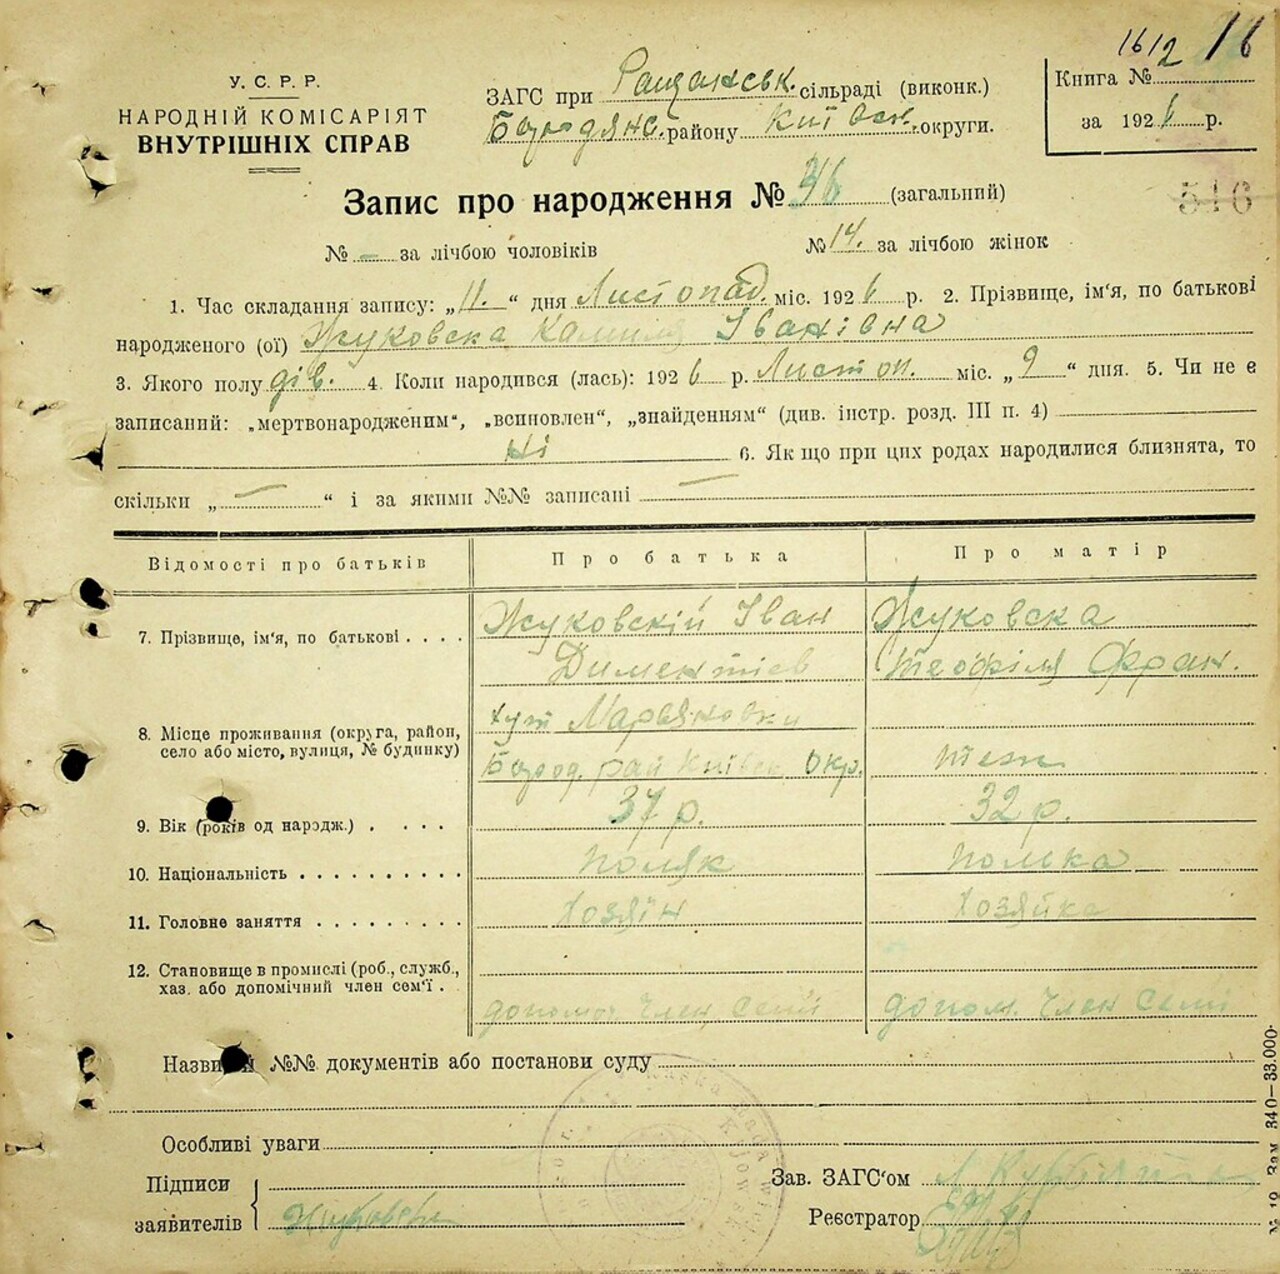 1612 16
У. С. Р. Р.
НАРОДНІЙ КОМІСАРІЯТ
ВНУТРІШНІХ СПРАВ
ЗАГС при Ращанськ. сільраді (виконк.)
Бородянс. району Київськ. округи.
Книга №
за 1926 р.
516
Запис про народження № 36 (загальний)
№ – за лічбою чоловіків
№ 14. за лічбою жінок
1. Час складання запису: „11.“ дня Листопад. міс. 1926 р. 2. Прізвище, ім'я, по батькові
народженого (ої) Жуковска Каміля Іванівна
3. Якого полу дів. 4. Коли народився (лась): 1926 р. Листоп. міс. „9“ дня. 5. Чи не є
записаний: „мертвонародженим“, „всиновлен“, „знайденням“ (див. інстр. розд. III п. 4)
Ні 6. Як що при цих родах народилися близнята, то
скільки „—“ і за якими №№ записані —
Відомості про батьків
Про батька
Про матір
7. Прізвище, ім'я, по батькові . . . .
Жуковскій Іван
Жуковска
Диментіев
Теофіля Фран.
8. Місце проживання (округа, район,
село або місто, вулиця, № будинку)
хут Марьяновки
Бород. рай Київск Окр.
Теж
9. Вік (років од народж.) . . . .
37 р.
32 р.
10. Національність . . . . . . . . . .
поляк
полька
11. Головне заняття . . . . . . . . .
Хозяїн
Хозяйка
12. Становище в промислі (роб., служб.,
хаз. або допомічний член сем'ї .
допомог. Член Семії
допом. Член Семії
Назви й №№ документів або постанови суду
Особливі уваги
Підписи
заявителів
Зав. ЗАГС'ом
Реєстратор
Зам. 340—33.000·